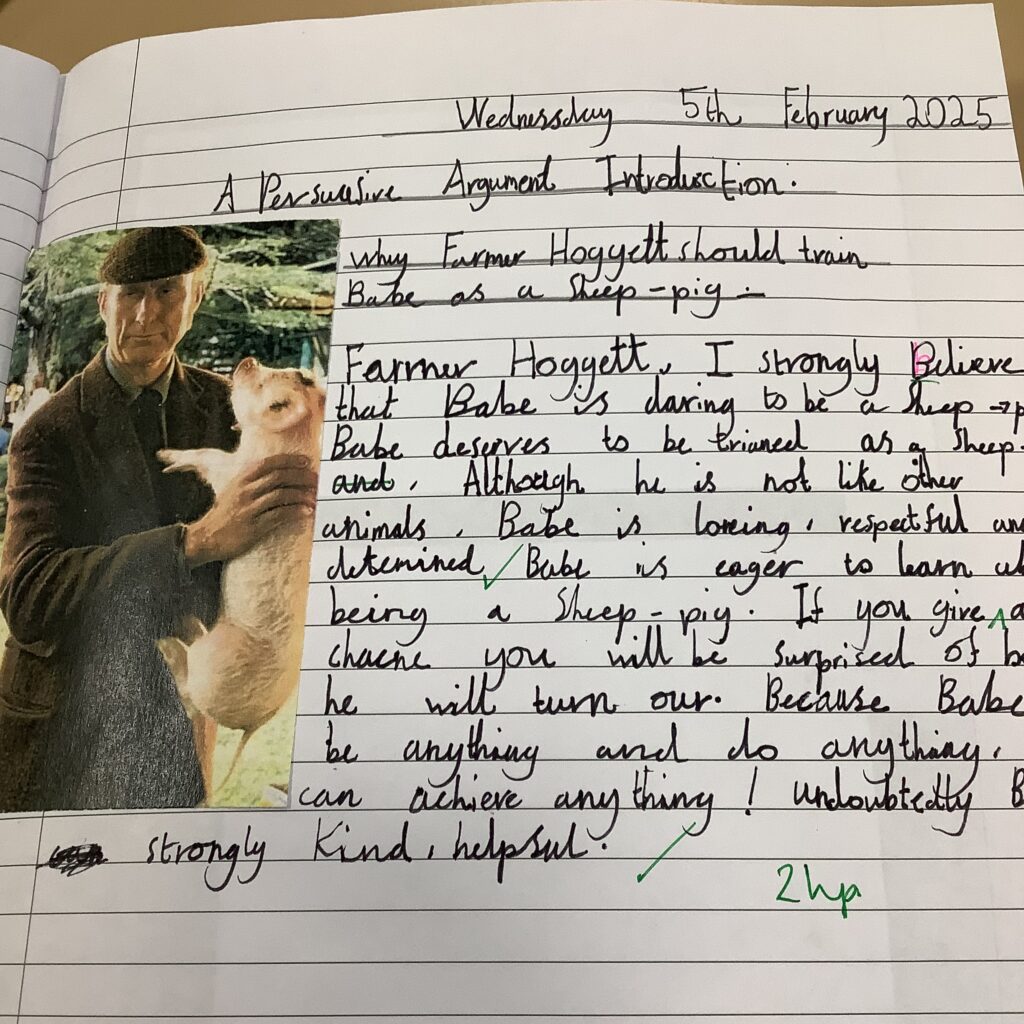 Wednessday 5th February 2025
A Persuasive Argument Introduction.
why Farmer Hoggett should train
Babe as a sheep-pig.
Farmer Hoggett, I strongly Believe
that Babe is daring to be a sheep-p
Babe deserves to be trianed as a sheep-
and. Although he is not like other
animals, Babe is loveing, respectful an
detemined Babe is eager to learn
being a sheep-pig. If you give a
chacne you will be surprised of
he will turn our. Because Babe
be anything and do anything.
can achieve anything! undoubtedly B
strongly kind, helpful.
2hp